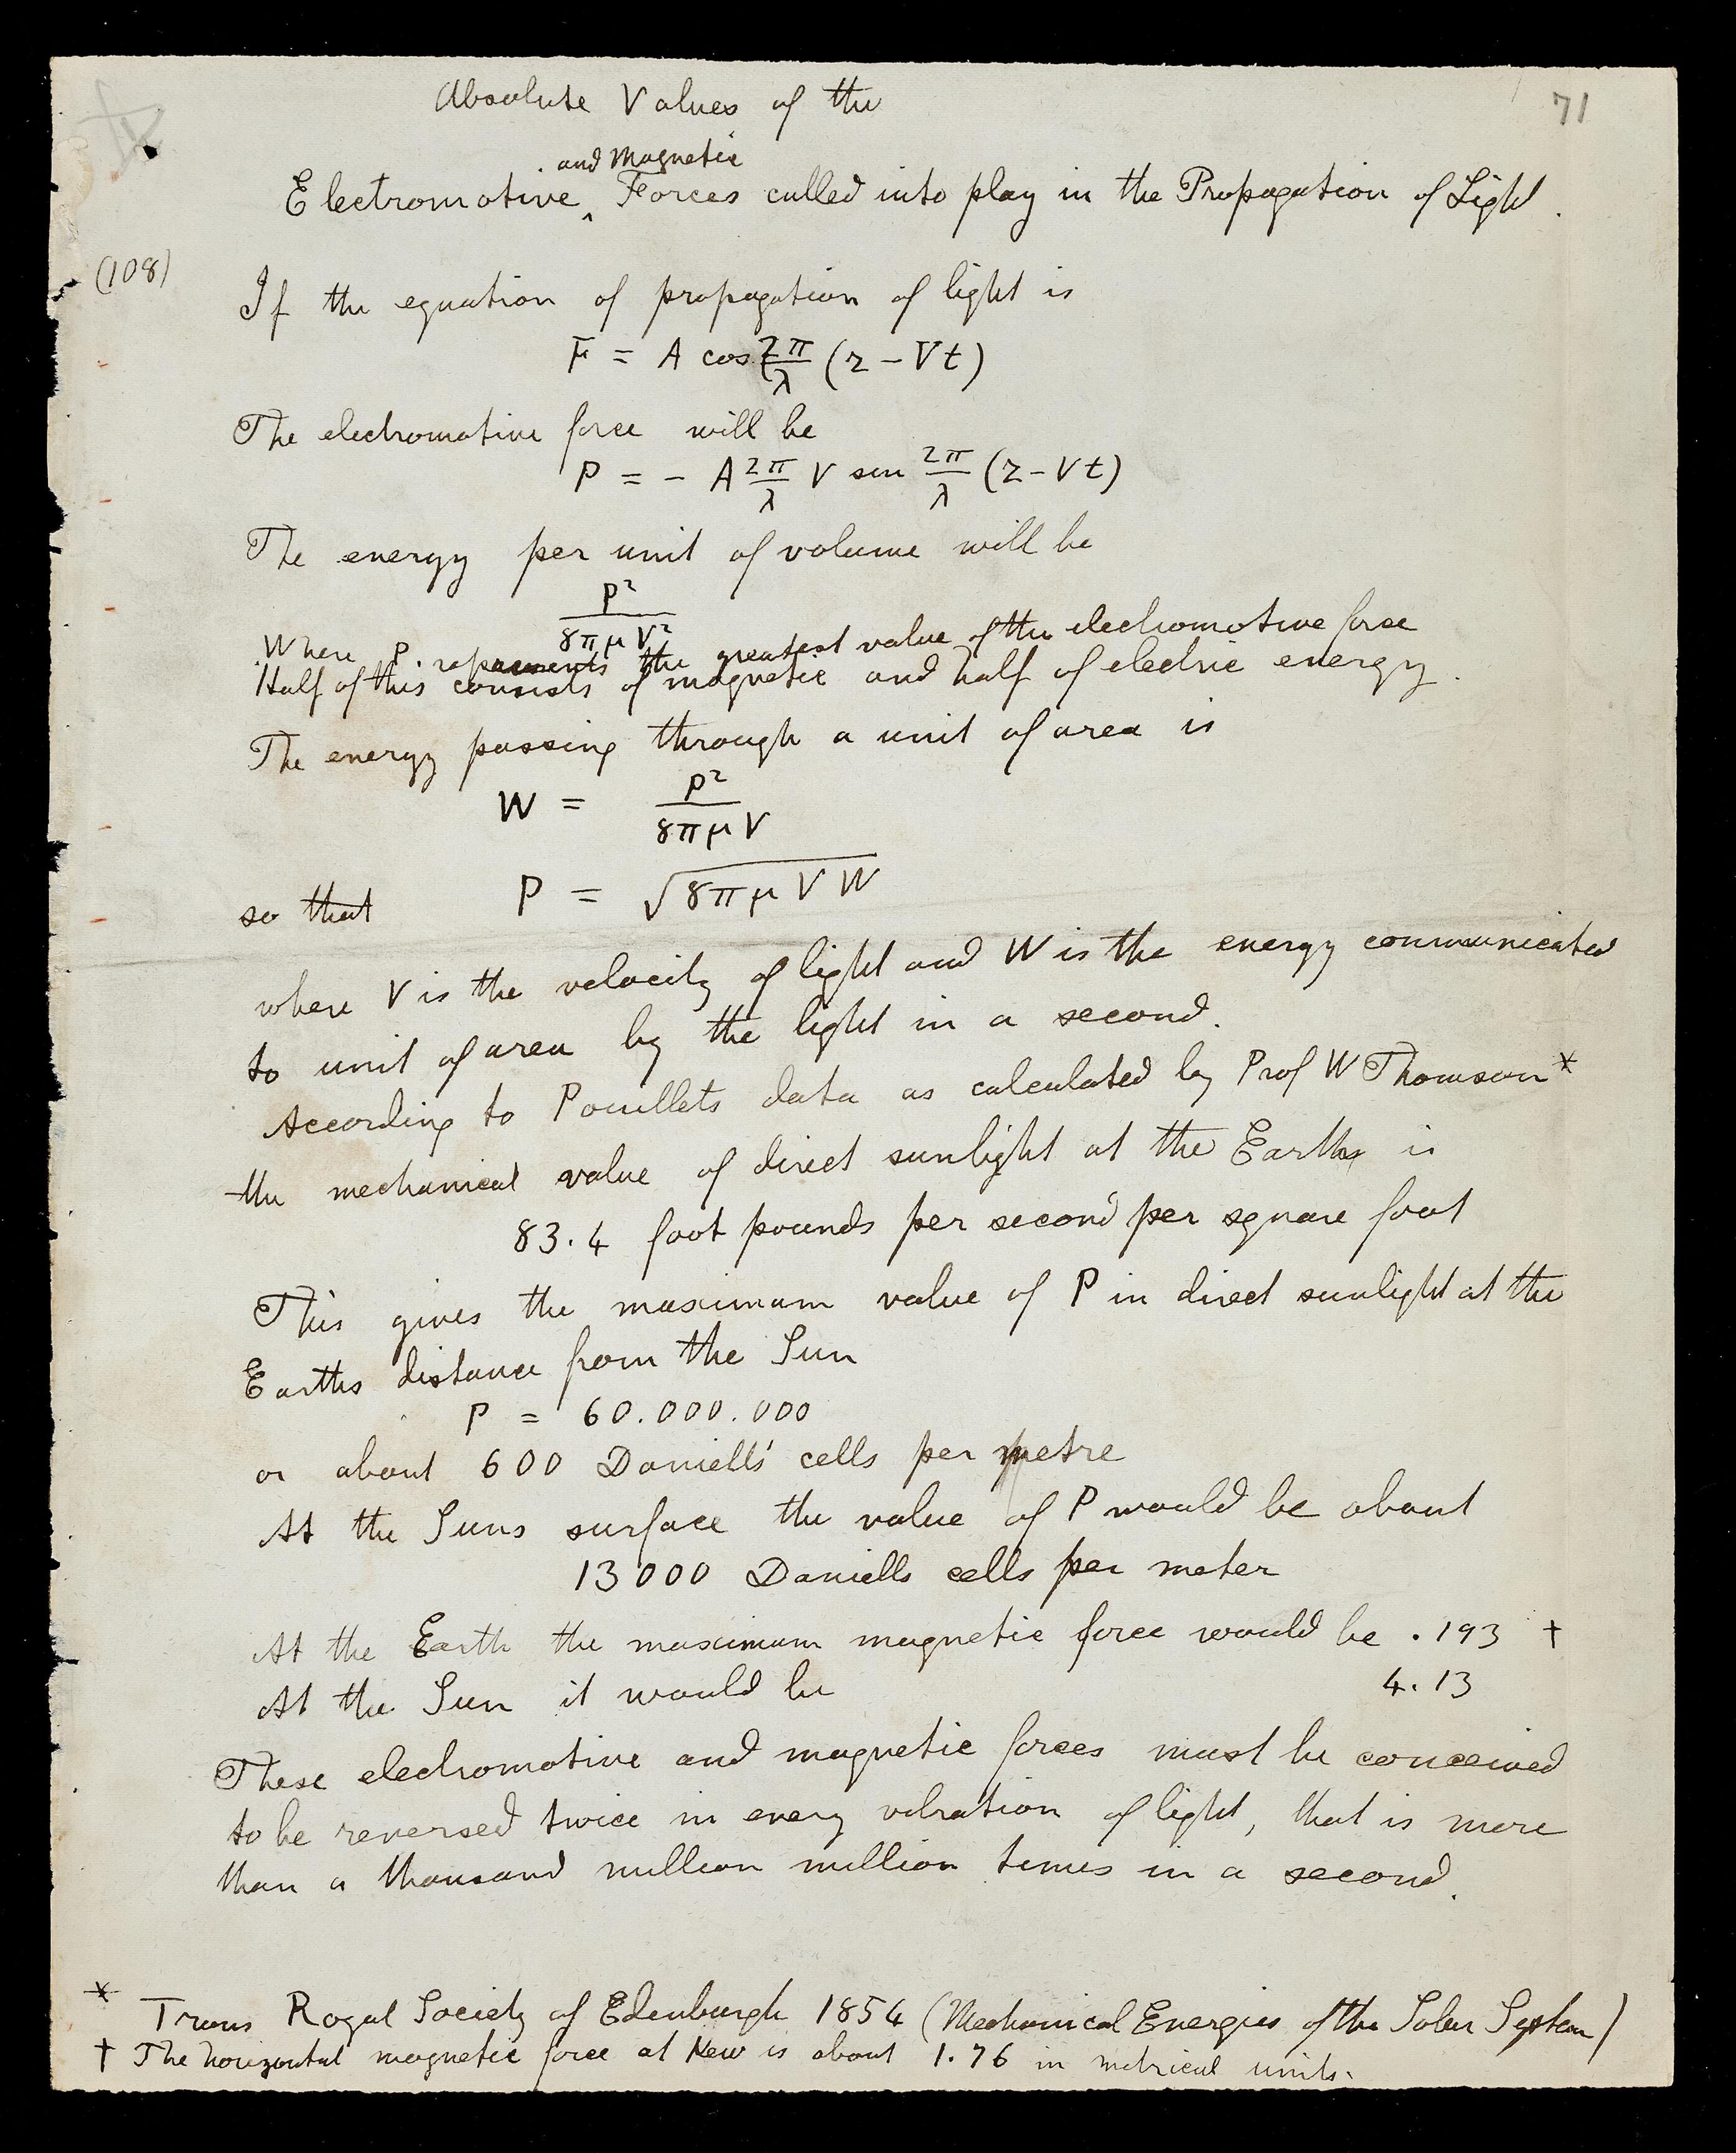 71
Absolute Values of the
and Magnetic
Electromotive ‸ Forces called into play in the Propagation of Light.
(108)
If the equation of propagation of light is
F = A cos 2π/λ (z − Vt)
The electromotive force will be
P = − A 2π/λ V sin 2π/λ (z − Vt)
The energy per unit of volume will be
P²/8πμV²
Where P represents the greatest value of the electromotive force
Half of this consists of magnetic and half of electric energy.
The energy passing through a unit of area is
W = P²/8πμV
so that P = √8πμVW
where V is the velocity of light and W is the energy communicated
to unit of area by the light in a second.
According to Pouillets data as calculated by Prof W Thomson*
the mechanical value of direct sunlight at the Earth is
83.4 foot pounds per second per square foot
This gives the maximum value of P in direct sunlight at the
Earths distance from the Sun
P = 60.000.000
or about 600 Daniells' cells per metre
At the Suns surface the value of P would be about
13000 Daniells cells per meter
At the Earth the maximum magnetic force would be .193 †
At the Sun it would be 4.13
These electromotive and magnetic forces must be conceived
to be reversed twice in every vibration of light, that is more
than a thousand million million times in a second.
* Trans Royal Society of Edinburgh 1854 (Mechanical Energies of the Solar System)
† The horizontal magnetic force at Kew is about 1.76 in metrical units.